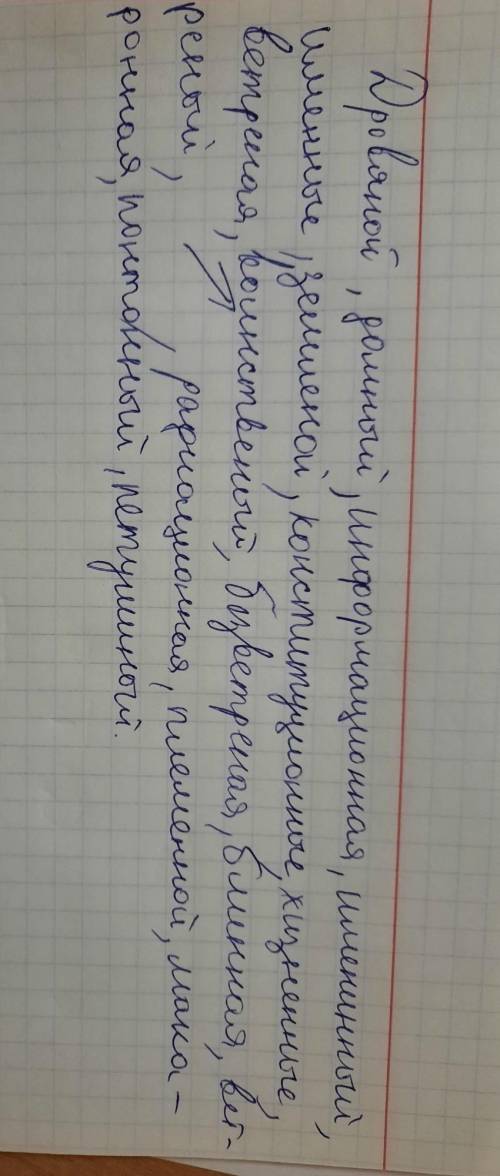 Дровяной, домный, информационная, именинный,
именные, земленой, конституционные, жизненные,
ветреная, воинственый, бизветреная, блинная, вет-
реный, , радиационная, племенной, мака-
ронная, понтонный, петушиный.